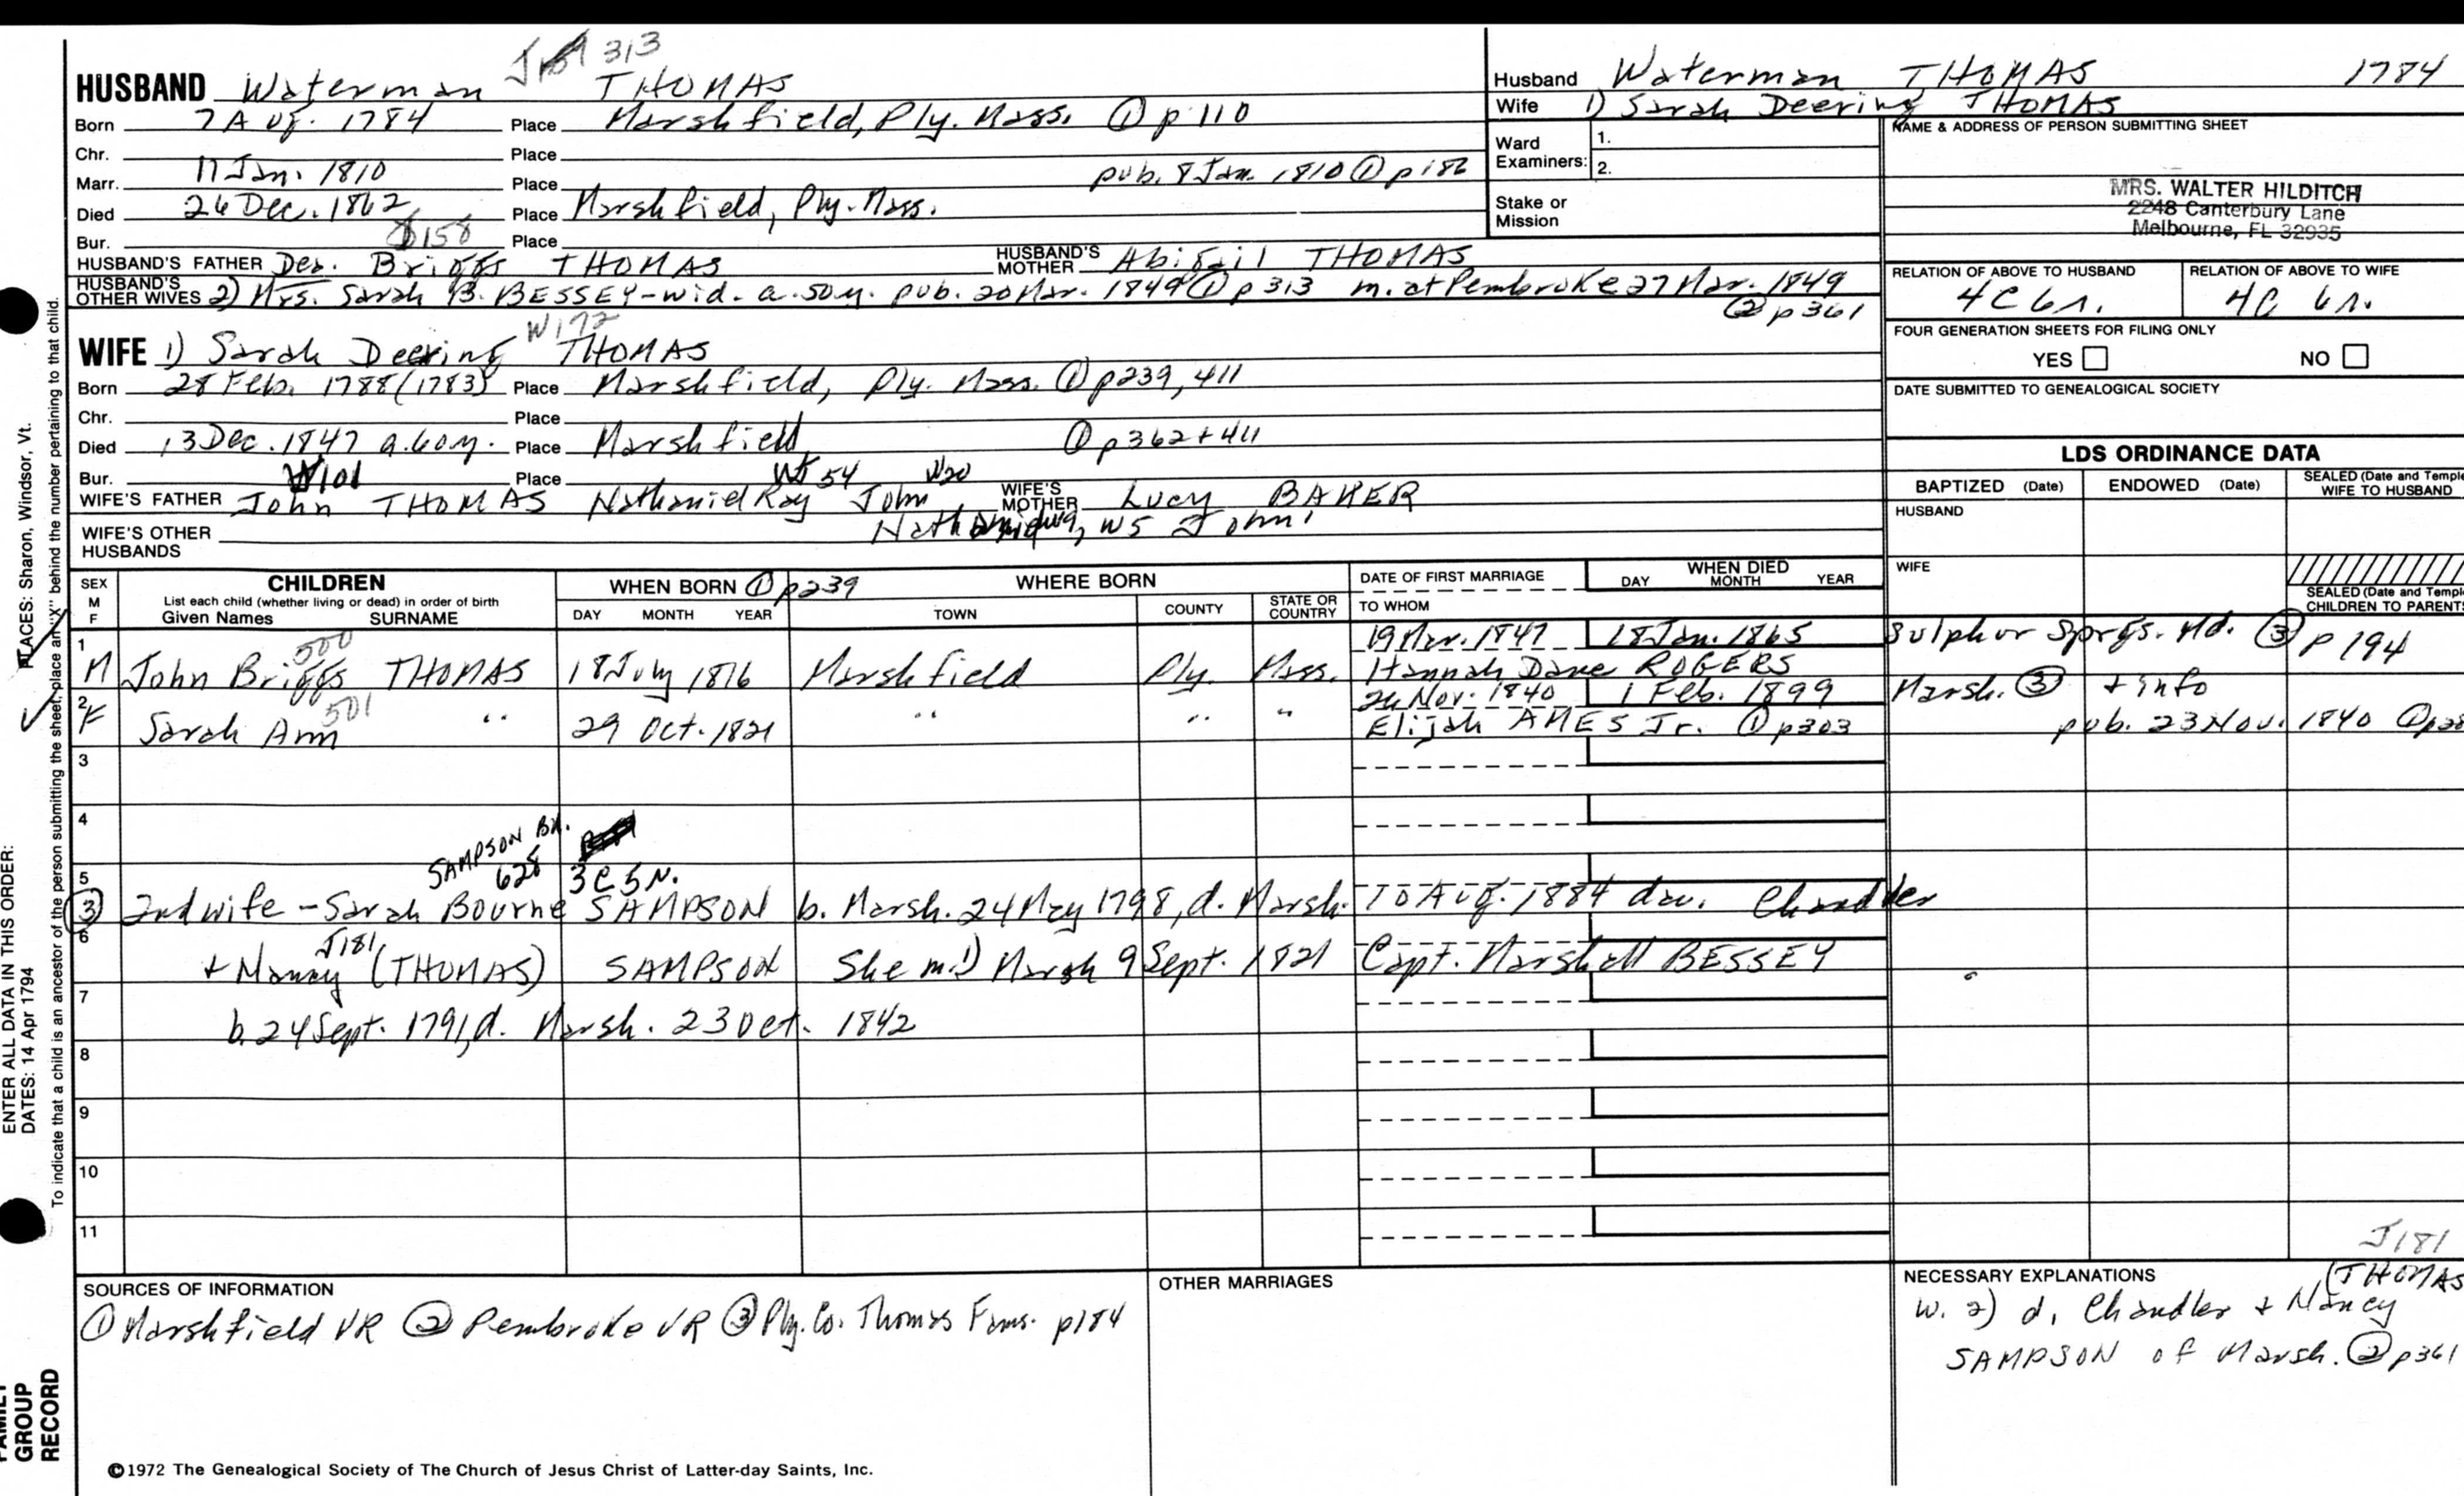 J 313
HUSBAND Waterman THOMAS
Born 7 Aug. 1784 Place Marshfield, Ply. Mass. ① p 110
Chr. Place
Marr. 11 Jan. 1810 Place pub. 8 Jan. 1810 ① p 186
Died 26 Dec. 1862 Place Marshfield, Ply. Mass.
Bur. 158 Place
HUSBAND'S FATHER Dea. Briggs THOMAS HUSBAND'S MOTHER Abigail THOMAS
HUSBAND'S OTHER WIVES 2) Mrs. Sarah B. BESSEY - wid. a. 50 y. pub. 20 Mar. 1849 ① p 313 m. at Pembroke 27 Mar. 1849
② p 361
W172
WIFE 1) Sarah Deering THOMAS
Born 28 Feb. 1788 (1783) Place Marshfield, Ply. Mass. ① p239, 411
Chr. Place
Died 13 Dec. 1847 a. 60 y. Place Marshfield ① p362 + 411
Bur. W101 Place W54 W20
WIFE'S FATHER John THOMAS Nathaniel Ray John WIFE'S MOTHER Lucy BAKER
W5 John
WIFE'S OTHER HUSBANDS
Husband Waterman THOMAS 1784
Wife 1) Sarah Deering THOMAS
Ward Examiners: 1.
2.
Stake or Mission
NAME & ADDRESS OF PERSON SUBMITTING SHEET
MRS. WALTER HILDITCH
2248 Canterbury Lane
Melbourne, FL 32935
RELATION OF ABOVE TO HUSBAND RELATION OF ABOVE TO WIFE
4C 6r. 4C 6r.
FOUR GENERATION SHEETS FOR FILING ONLY
YES NO
DATE SUBMITTED TO GENEALOGICAL SOCIETY
LDS ORDINANCE DATA
BAPTIZED (Date) ENDOWED (Date) SEALED (Date and Temple WIFE TO HUSBAND
HUSBAND
WIFE
SEALED (Date and Temple CHILDREN TO PARENTS
SEX M F CHILDREN WHEN BORN ① p239 WHERE BORN DATE OF FIRST MARRIAGE WHEN DIED
List each child (whether living or dead) in order of birth
Given Names SURNAME DAY MONTH YEAR TOWN COUNTY STATE OR COUNTRY TO WHOM DAY MONTH YEAR
500
1 19 Nov. 1847 18 Jan. 1865 Sulphur Sprgs. Md. ③ p 194
M John Briggs THOMAS 18 July 1816 Marshfield Ply. Mass. Hannah Dane ROGERS
501
2 26 Nov. 1840 1 Feb. 1899 Marsh. ③ + info
F Sarah Ann " 29 Oct. 1821 " " " Elijah AMES Jr. ① p303 pub. 23 Nov. 1840
3
4
SAMPSON BK.
628 3C 5N.
5
③ 2nd wife - Sarah Bourne SAMPSON b. Marsh. 24 May 1798, d. Marsh. 10 Aug. 1884 dau. Chandler
6 J181
+ Nancy (THOMAS) SAMPSON She m. 1) Marsh 9 Sept. 1821 Capt. Marshall BESSEY
7
b. 24 Sept. 1791, d. Marsh. 23 Oct. 1842
8
9
10
11
SOURCES OF INFORMATION
① Marshfield VR ② Pembroke VR ③ Ply. Co. Thomas Fams. p184
OTHER MARRIAGES
J181
NECESSARY EXPLANATIONS (THOMAS
w. 2) d. Chandler + Nancy
SAMPSON of Marsh. ② p361
©1972 The Genealogical Society of The Church of Jesus Christ of Latter-day Saints, Inc.
ENTER ALL DATA IN THIS ORDER:
DATES: 14 Apr 1794 PLACES: Sharon, Windsor, Vt.
To indicate that a child is an ancestor of the person submitting the sheet, place an "X" behind the number pertaining to that child.
FAMILY
GROUP
RECORD